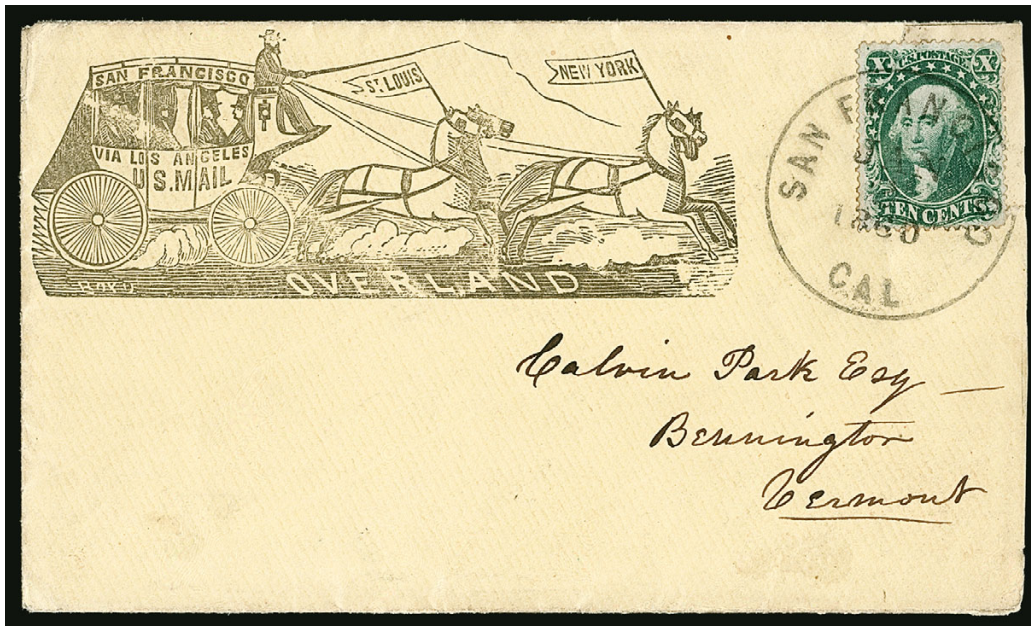 SAN FRANCISCO
VIA LOS ANGELES
U.S. MAIL
ST. LOUIS
NEW YORK
OVERLAND
X U.S. POSTAGE X
TEN CENTS
SAN FRANCISCO
1860
CAL
Calvin Park Esq —
Bennington
Vermont